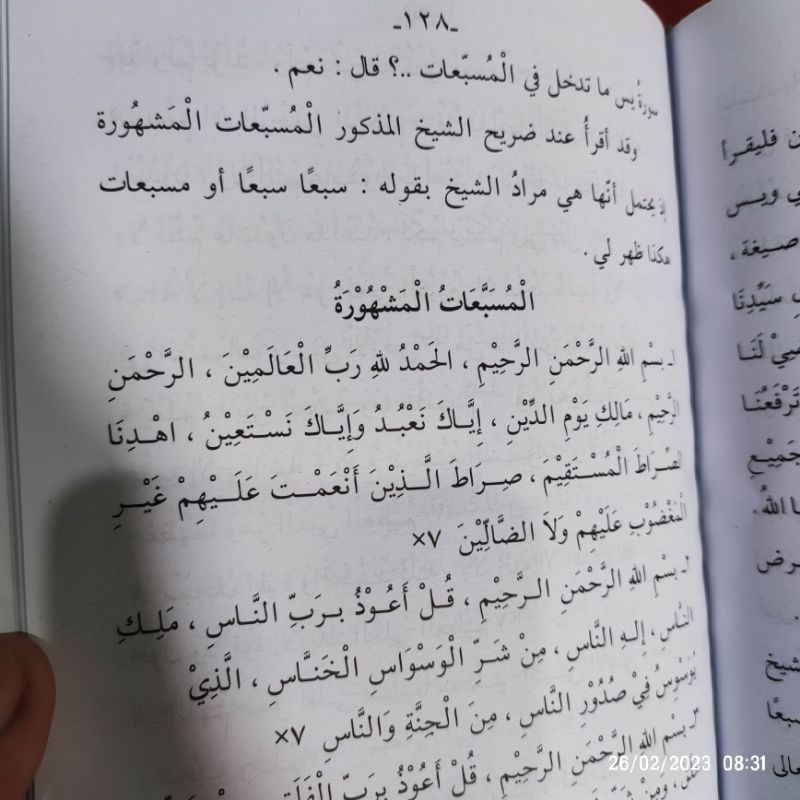 -١٢٨-
سورةُ يس ما تدخل في الْمُسبّعات ..؟ قال : نعم .
وقد أقرأُ عند ضريح الشيخ المذكور الْمُسبّعات الْمَشهُورة
إذ يحتمل أنّها هي مرادُ الشيخ بقوله : سبعًا سبعًا أو مسبعات
هكذا ظهر لي .
الْمُسَبَّعَاتُ الْمَشْهُوْرَةُ
١ـ بِسْمِ اللهِ الرَّحْمَنِ الرَّحِيْمِ ، الحَمْدُ للهِ رَبِّ الْعَالَمِيْنَ ، الرَّحْمَنِ
الرَّحِيْمِ ، مَالِكِ يَوْمِ الدِّيْنِ ، إِيَّاكَ نَعْبُدُ وَإِيَّاكَ نَسْتَعِيْنُ ، اهْدِنَا
الصِّرَاطَ الْمُسْتَقِيْمَ ، صِرَاطَ الَّذِيْنَ أَنْعَمْتَ عَلَيْهِمْ غَيْرِ
الْمَغْضُوْبِ عَلَيْهِمْ وَلاَ الضَّالِّيْنَ ٧×
٢ـ بِسْمِ اللهِ الرَّحْمَنِ الرَّحِيْمِ ، قُلْ أَعُوْذُ بِرَبِّ النَّاسِ ، مَلِكِ
النَّاسِ ، إِلهِ النَّاسِ ، مِنْ شَرِّ الْوَسْوَاسِ الْخَنَّاسِ ، الَّذِيْ
يُوَسْوِسُ فِيْ صُدُوْرِ النَّاسِ ، مِنَ الْجِنَّةِ وَالنَّاسِ ٧×
٣ـ بِسْمِ اللهِ الرَّحْمَنِ الرَّحِيْمِ ، قُلْ أَعُوْذُ بِرَبِّ الْفَلَقِ
ن فليقرأ
ي ويس
صيغة ،
سَيِّدِنَا
ضِيْ لَنَا
تَرْفَعُنَا
جَمِيْعِ
ا اللهُ .
رض
شيخ
سبعًا
عالى
26/02/2023 08:31